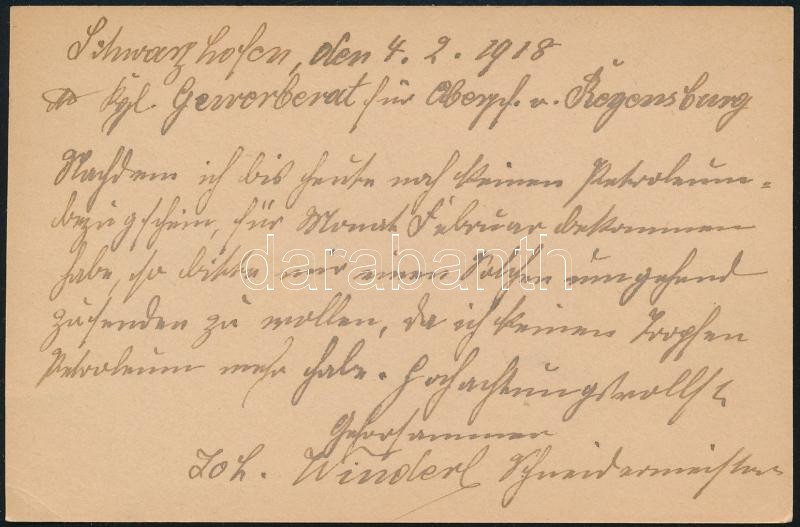 Schwarzhofen, den 4. 2. 1918
Kgl. Gewerberat für Oberpf. u. Regensburg
Nachdem ich bis heute noch keinen Petroleum-
bezugschein, für Monat Februar bekommen
habe, so bitte mir einen Solchen umgehend
zusenden zu wollen, da ich keinen Tropfen
Petroleum mehr habe. Hochachtungsvollst
Gehorsammer
Joh. Winderl Schneidermeister
darabanth